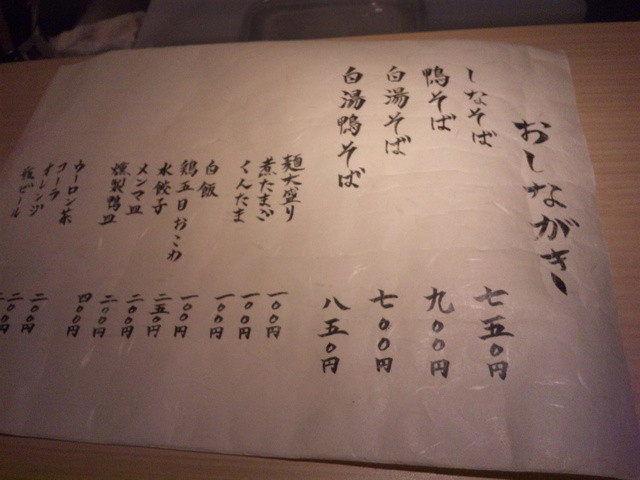 おしながき
しなそば 七五〇円
鴨そば 九〇〇円
白湯そば 七〇〇円
白湯鴨そば 八五〇円
麺大盛り 一〇〇円
煮たまご 一〇〇円
くんたま 一〇〇円
白飯 一〇〇円
鶏五目おこわ 二五〇円
水餃子 二〇〇円
メンマ皿 二〇〇円
燻製鴨皿 四〇〇円
ウーロン茶 二〇〇円
コーラ 二〇〇円
オレンジ
ビール